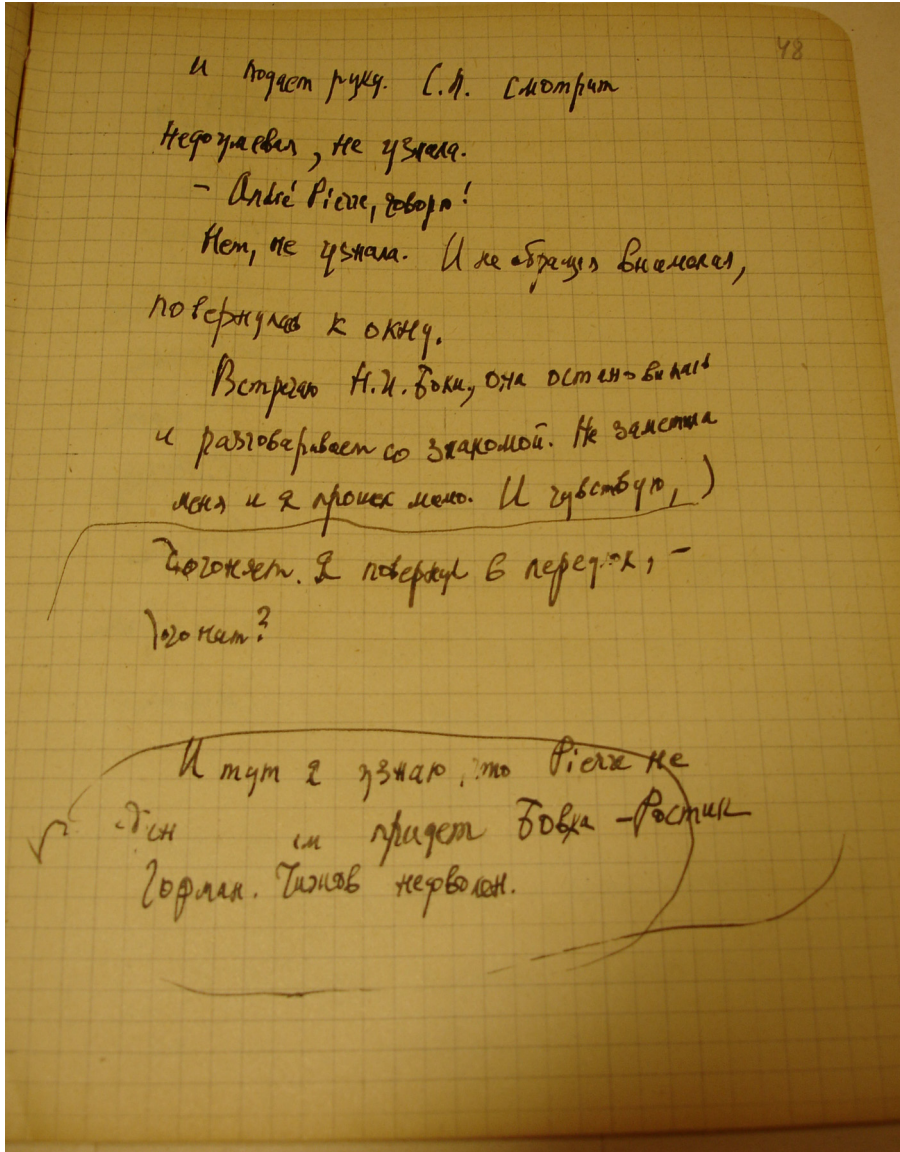 48
и подает руку. С.П. смотрит
недоумевая, не узнала.
- André Pierre, говорю!
Нет, не узнала. И не обращая внимания,
повернулась к окну.
Встречаю Н.И. Боки, она остановилась
и разговаривает со знакомой. Не заметила
меня и я прошел мимо. И чувствую,
догоняет. Я повернул в передок, -
догонит?
И тут я узнаю, что Pierre не
один придет
Горман. недоволен.